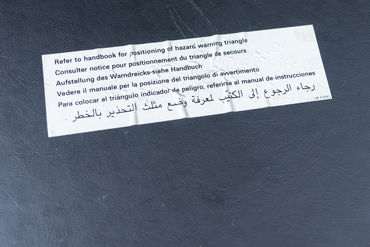 Refer to handbook for positioning of hazard warning triangle
Consulter notice pour positionnement du triangle de secours
Aufstellung des Warndreicks-siehe Handbuch
Vedere il manuale per la posizione del triangolo di avvertimento
Para colocar el triángulo indicador de peligro, referirse al manual de instrucciones
رجاء الرجوع إلى الكتيّب لمعرفة وضع مثلث التحذير بالخطر .